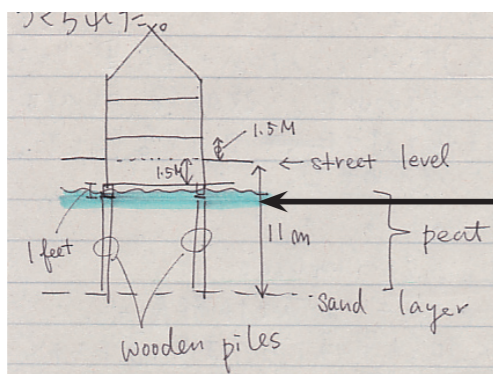 1.5M
1.5M
← street level
1 feet
11 m
peat
sand layer
wooden piles